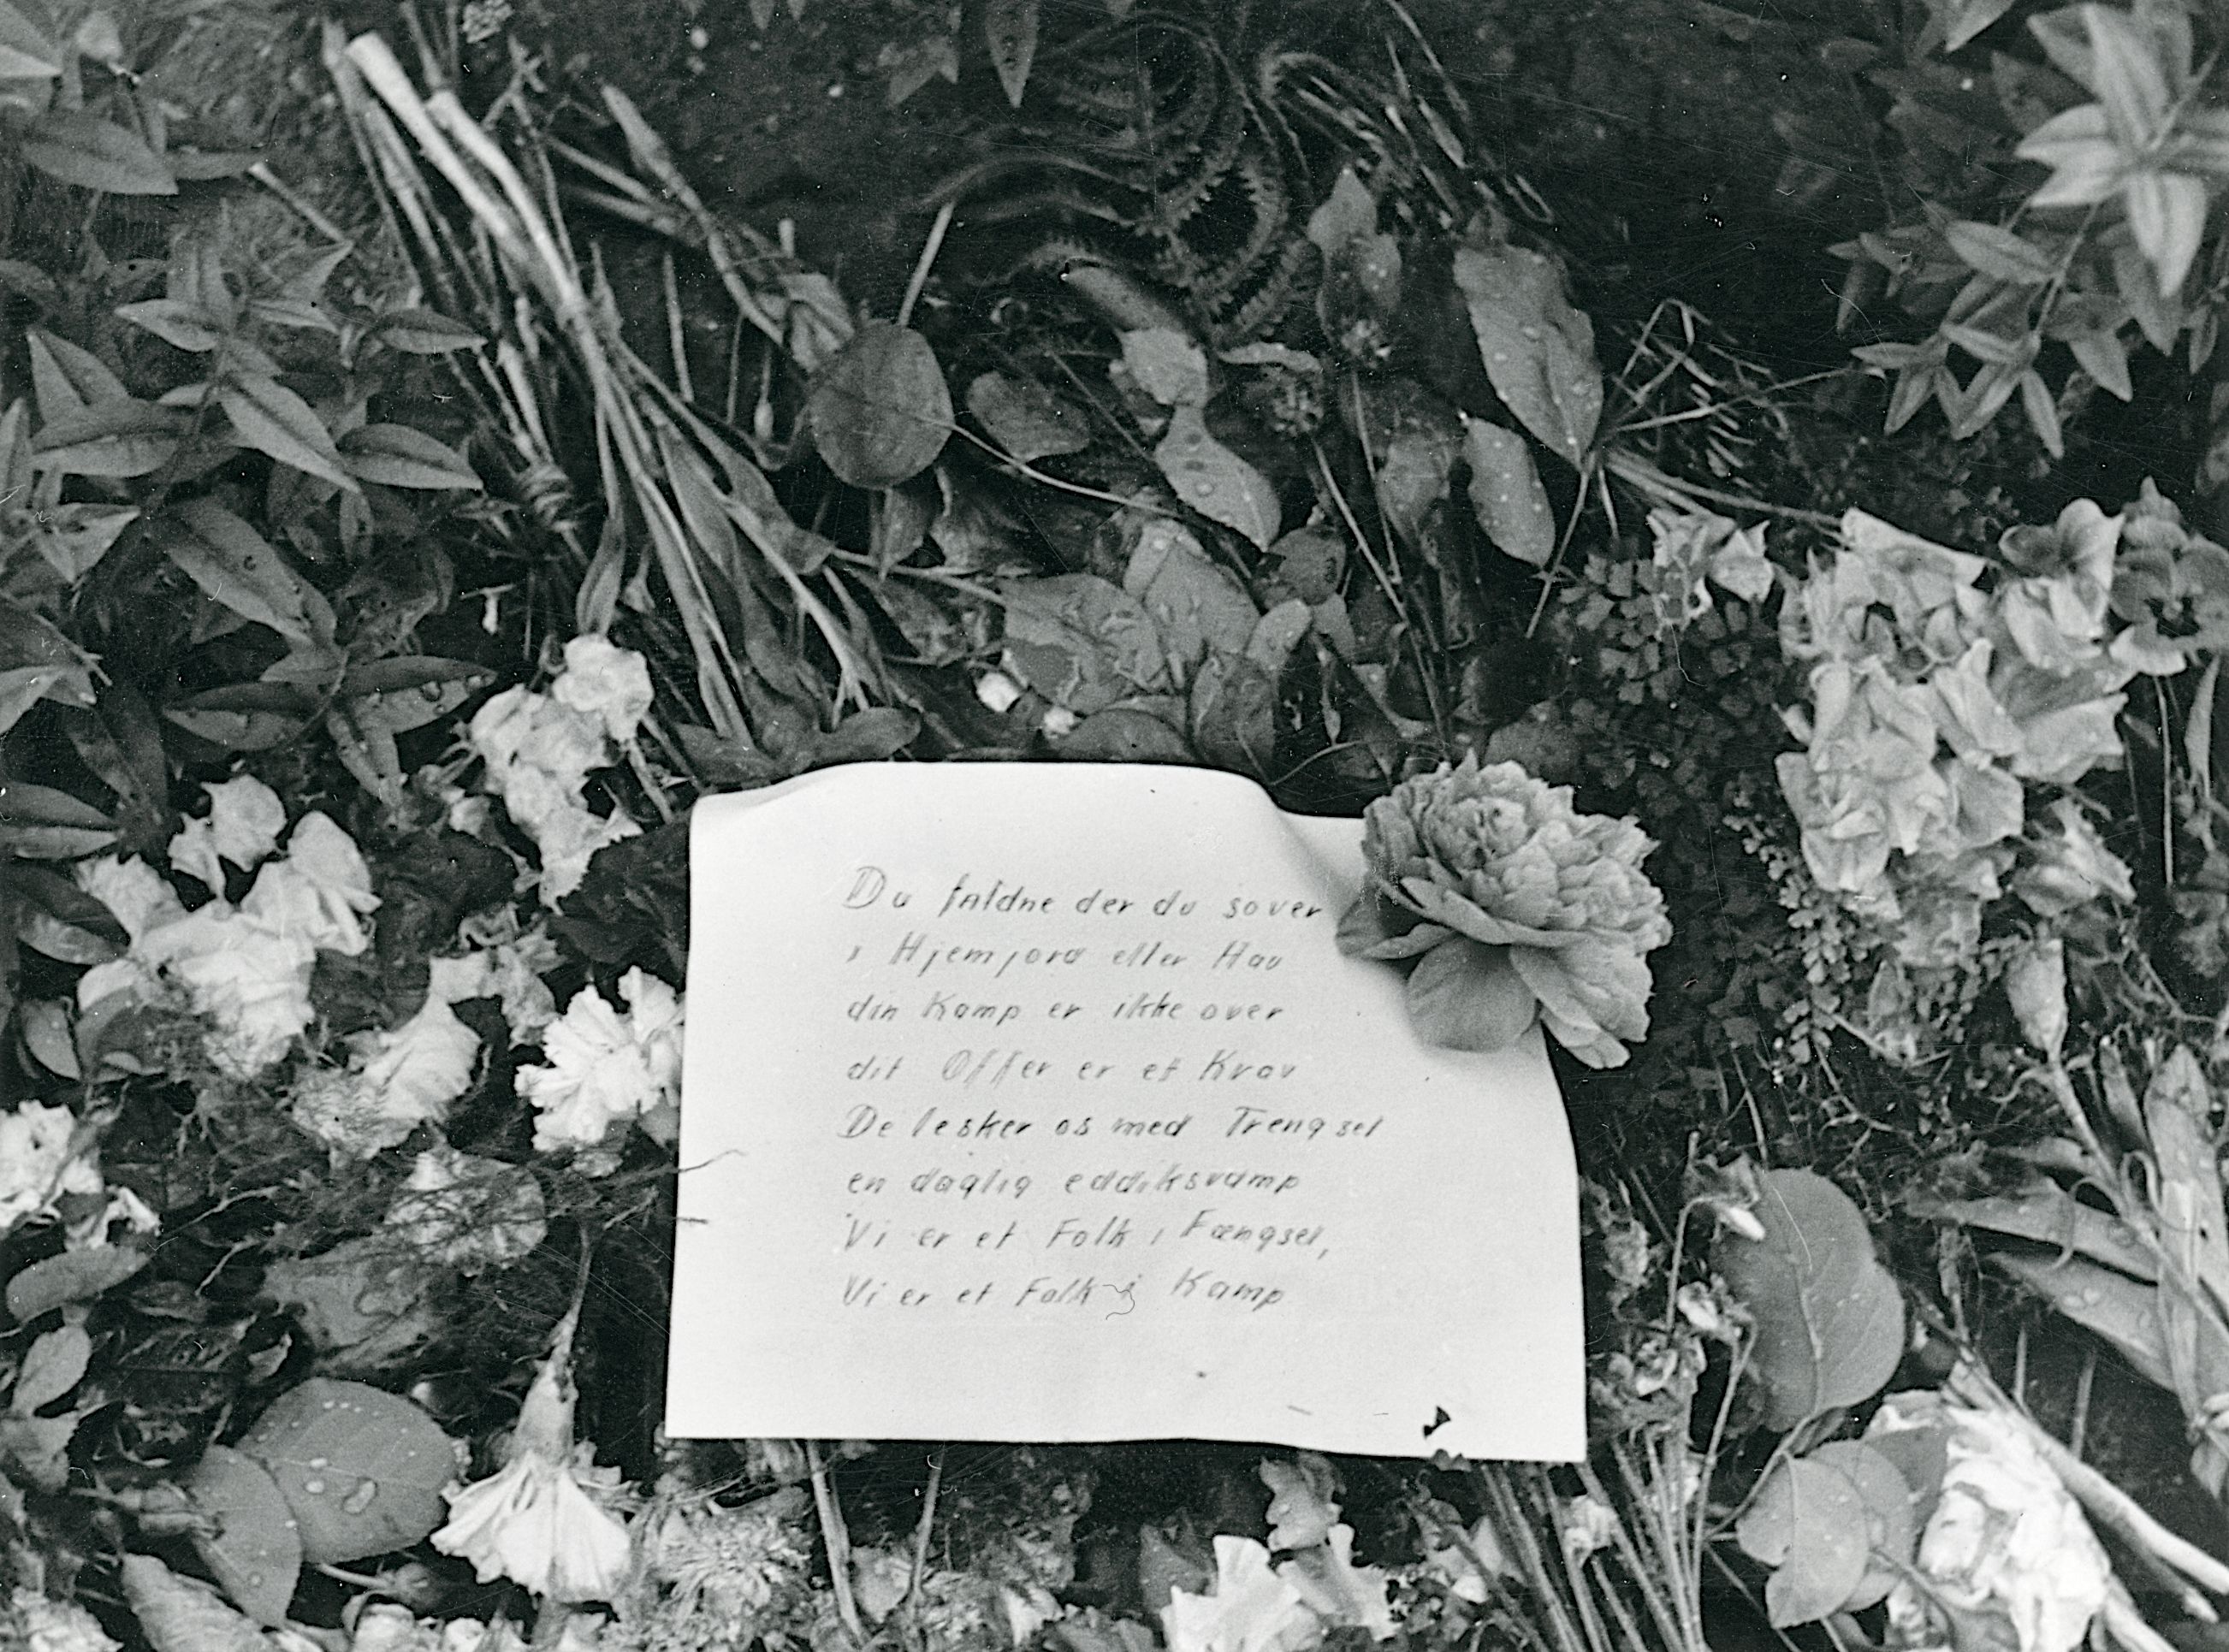 Du faldne der du sover
i Hjemjord eller Hav
din Kamp er ikke over
dit Offer er et Krav
De lesker os med Trengsel
en daglig eddiksvamp
Vi er et Folk i Fængsel,
Vi er et Folk i Kamp